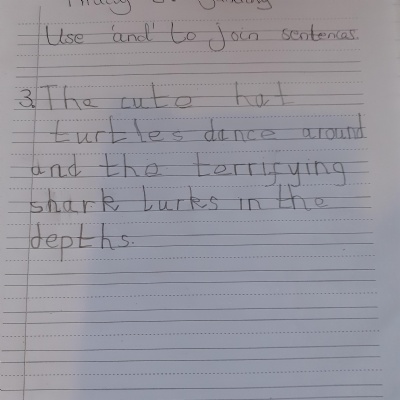 Use 'and' to join sentences.
3. The cute hat
turtles dance around
and the terrifying
shark lurks in the
depths.